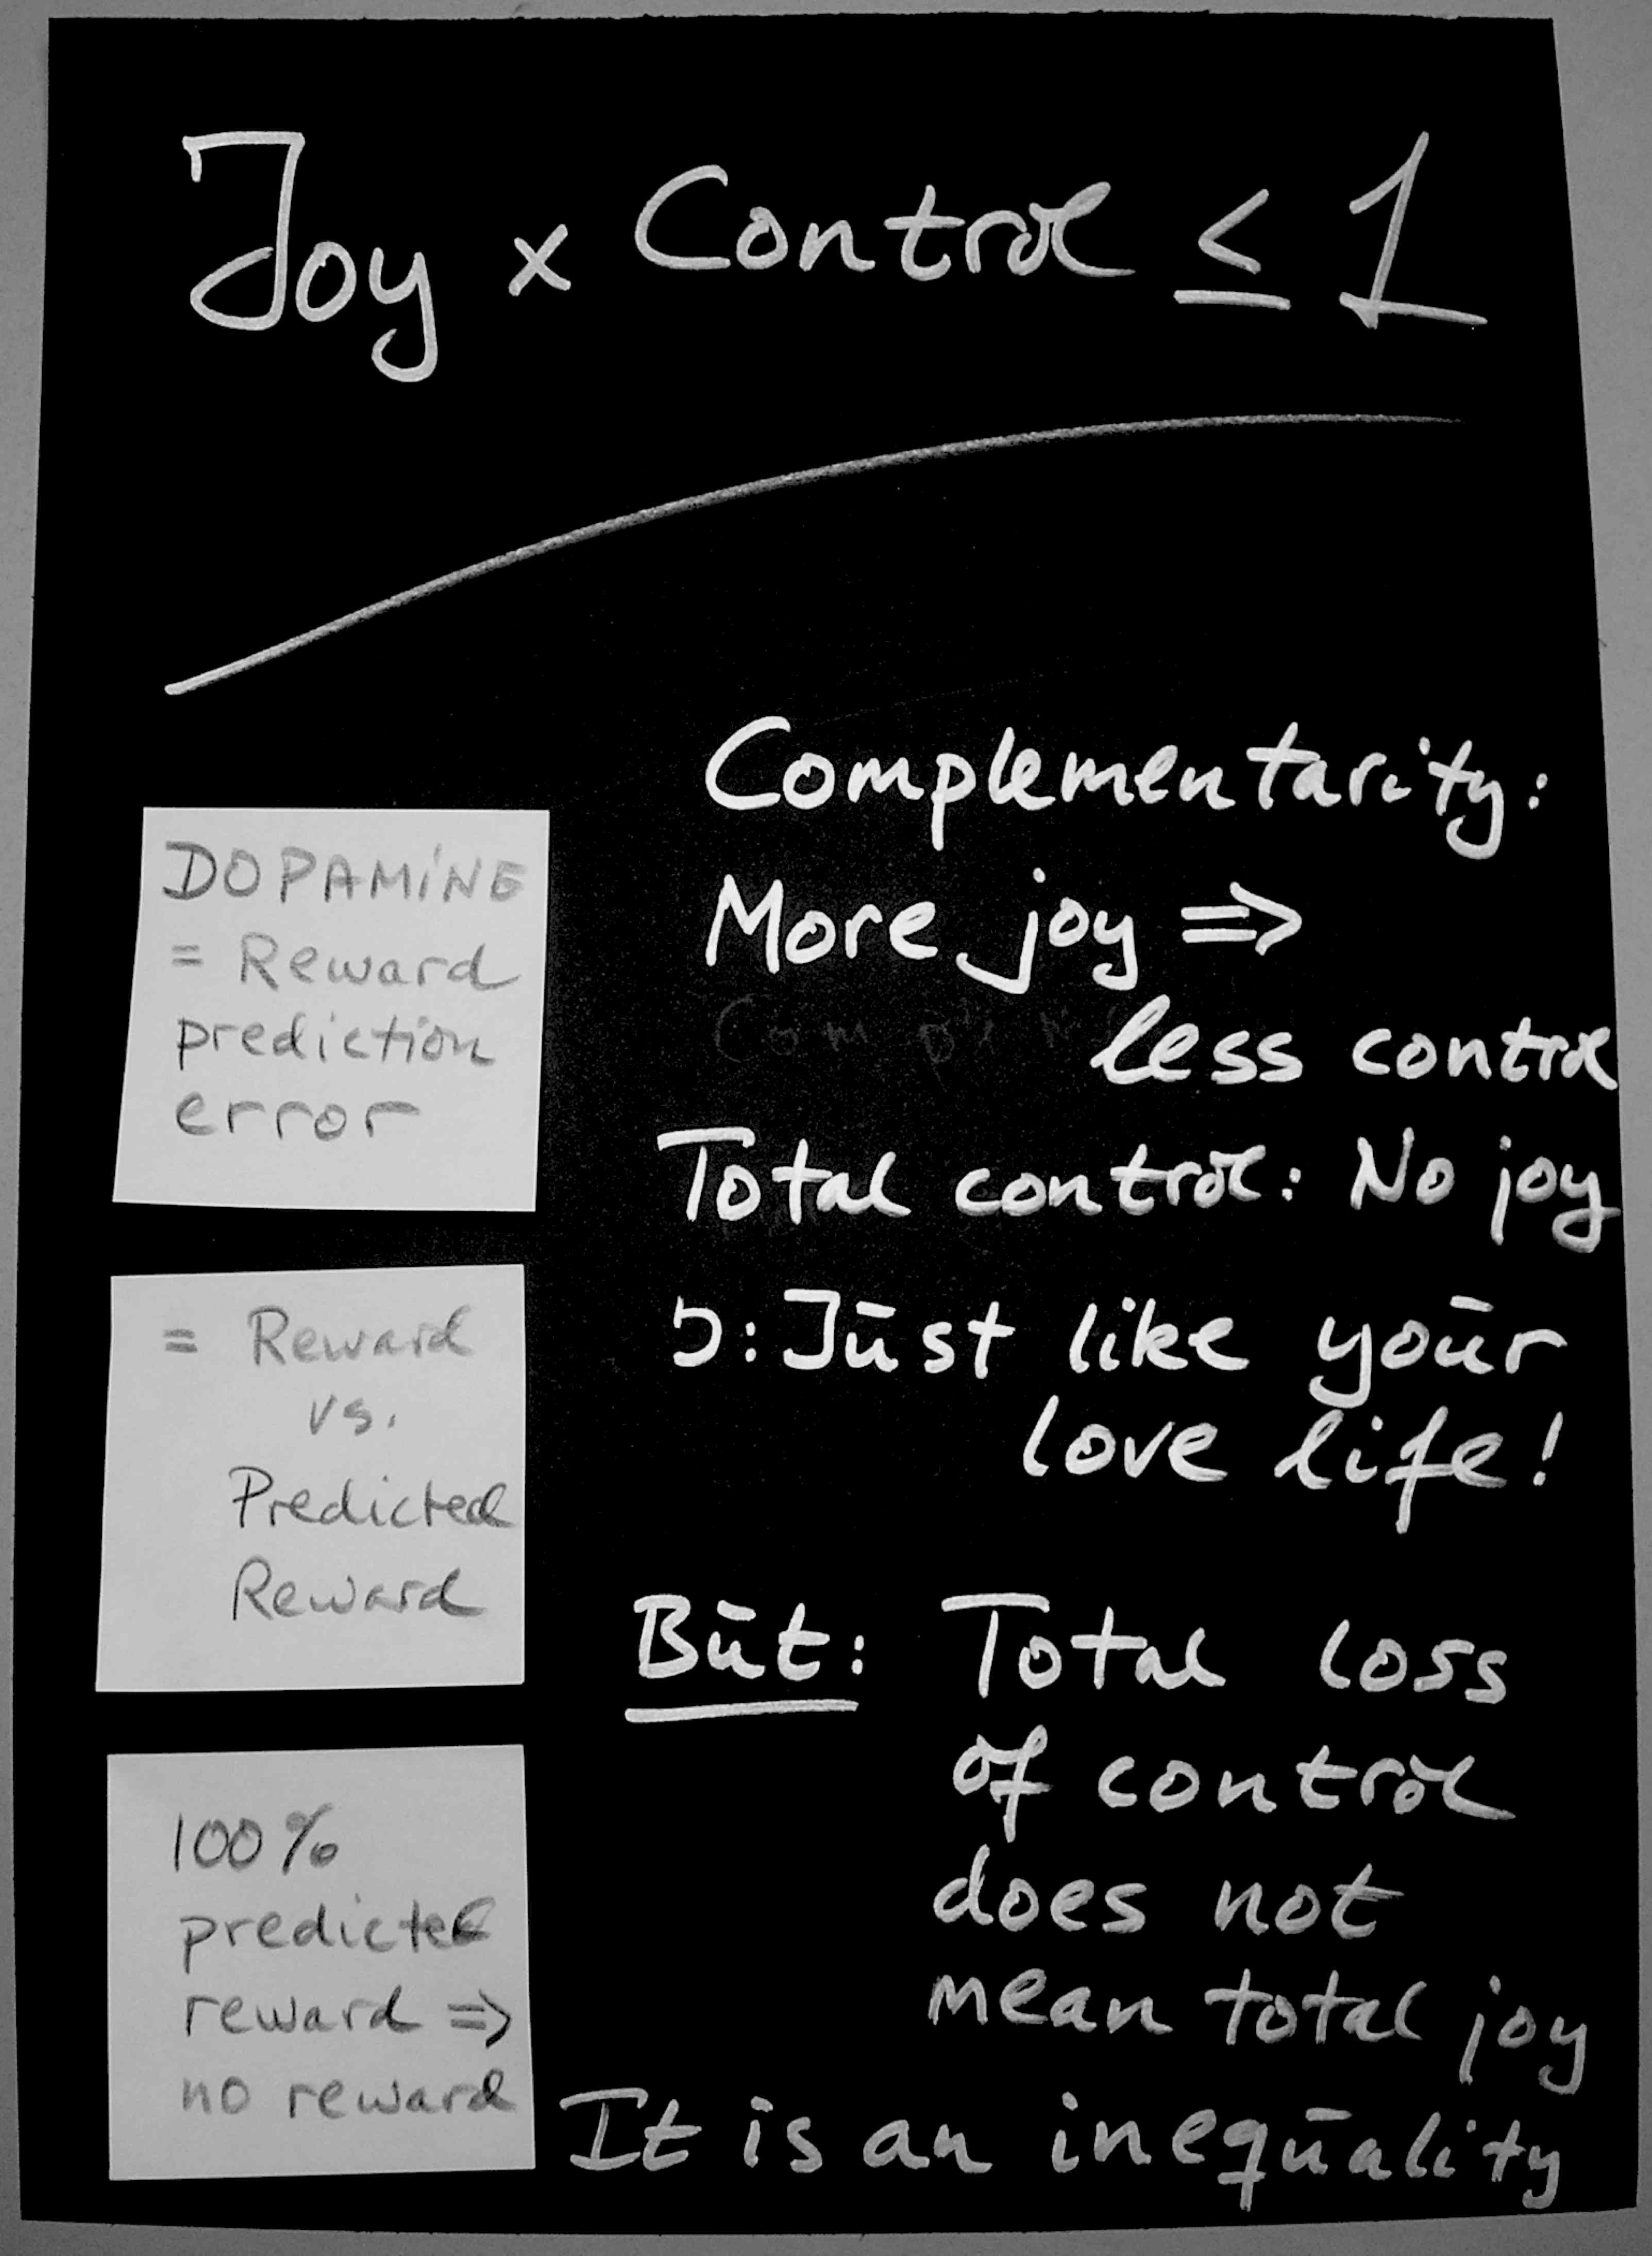 Joy x Control ≤ 1
Complementarity:
More joy =>
less control
Total control: No joy
Ↄ: Just like your
love life!
But: Total loss
of control
does not
mean total joy
It is an inequality
DOPAMINE
= Reward
prediction
error
= Reward
vs.
Predicted
Reward
100%
predicted
reward =>
no reward